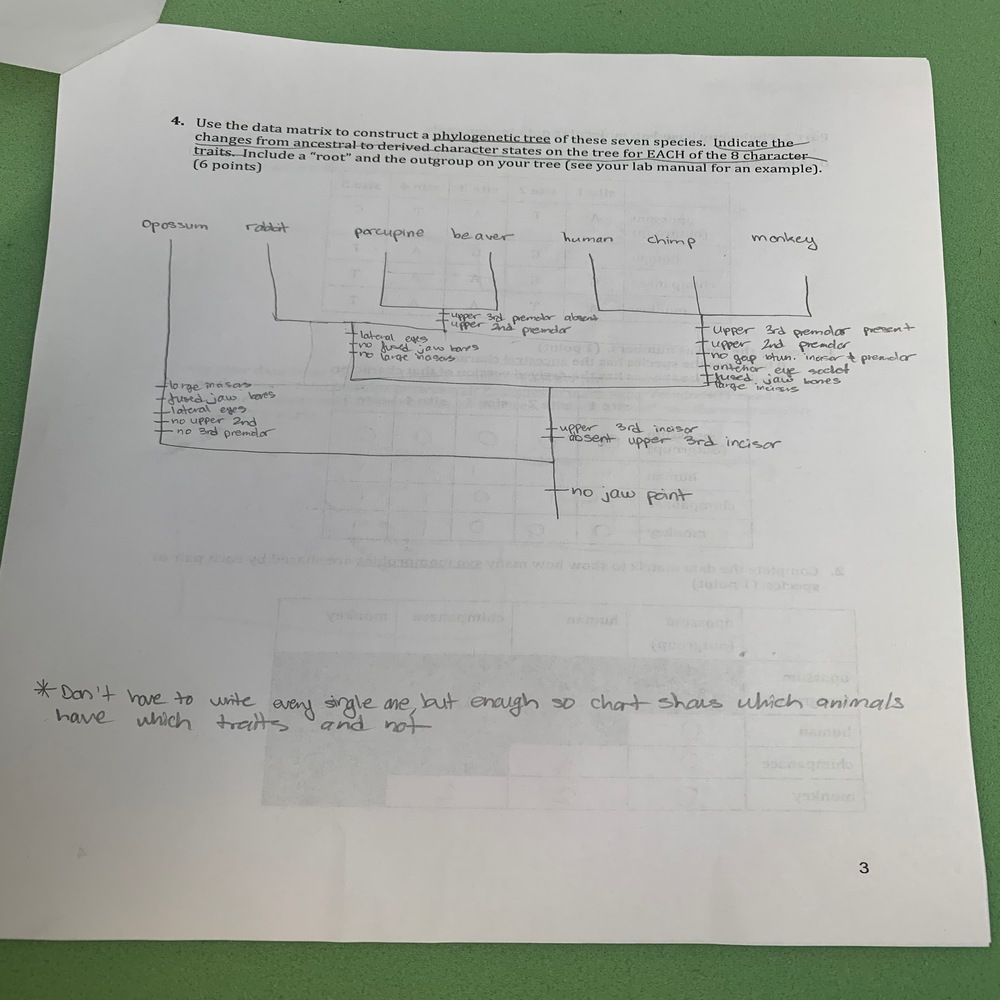 4. Use the data matrix to construct a phylogenetic tree of these seven species. Indicate the
changes from ancestral to derived character states on the tree for EACH of the 8 character
traits. Include a "root" and the outgroup on your tree (see your lab manual for an example).
(6 points)
opossum rabbit porcupine beaver human chimp monkey
upper 3rd premolar absent
upper 2nd premolar
lateral eyes
no fused jaw bones
no large
upper 3rd premolar present
upper 2nd premolar
no gap btwn. incisor & premolar
anterior eye socket
fused jaw bones
large incisis
large
fused jaw bones
lateral eyes
no upper 2nd
no 3rd premolar
upper 3rd incisor
absent upper 3rd incisor
no jaw point
* Don't have to write every single one, but enough so chart shows which animals
have which traits and not
3